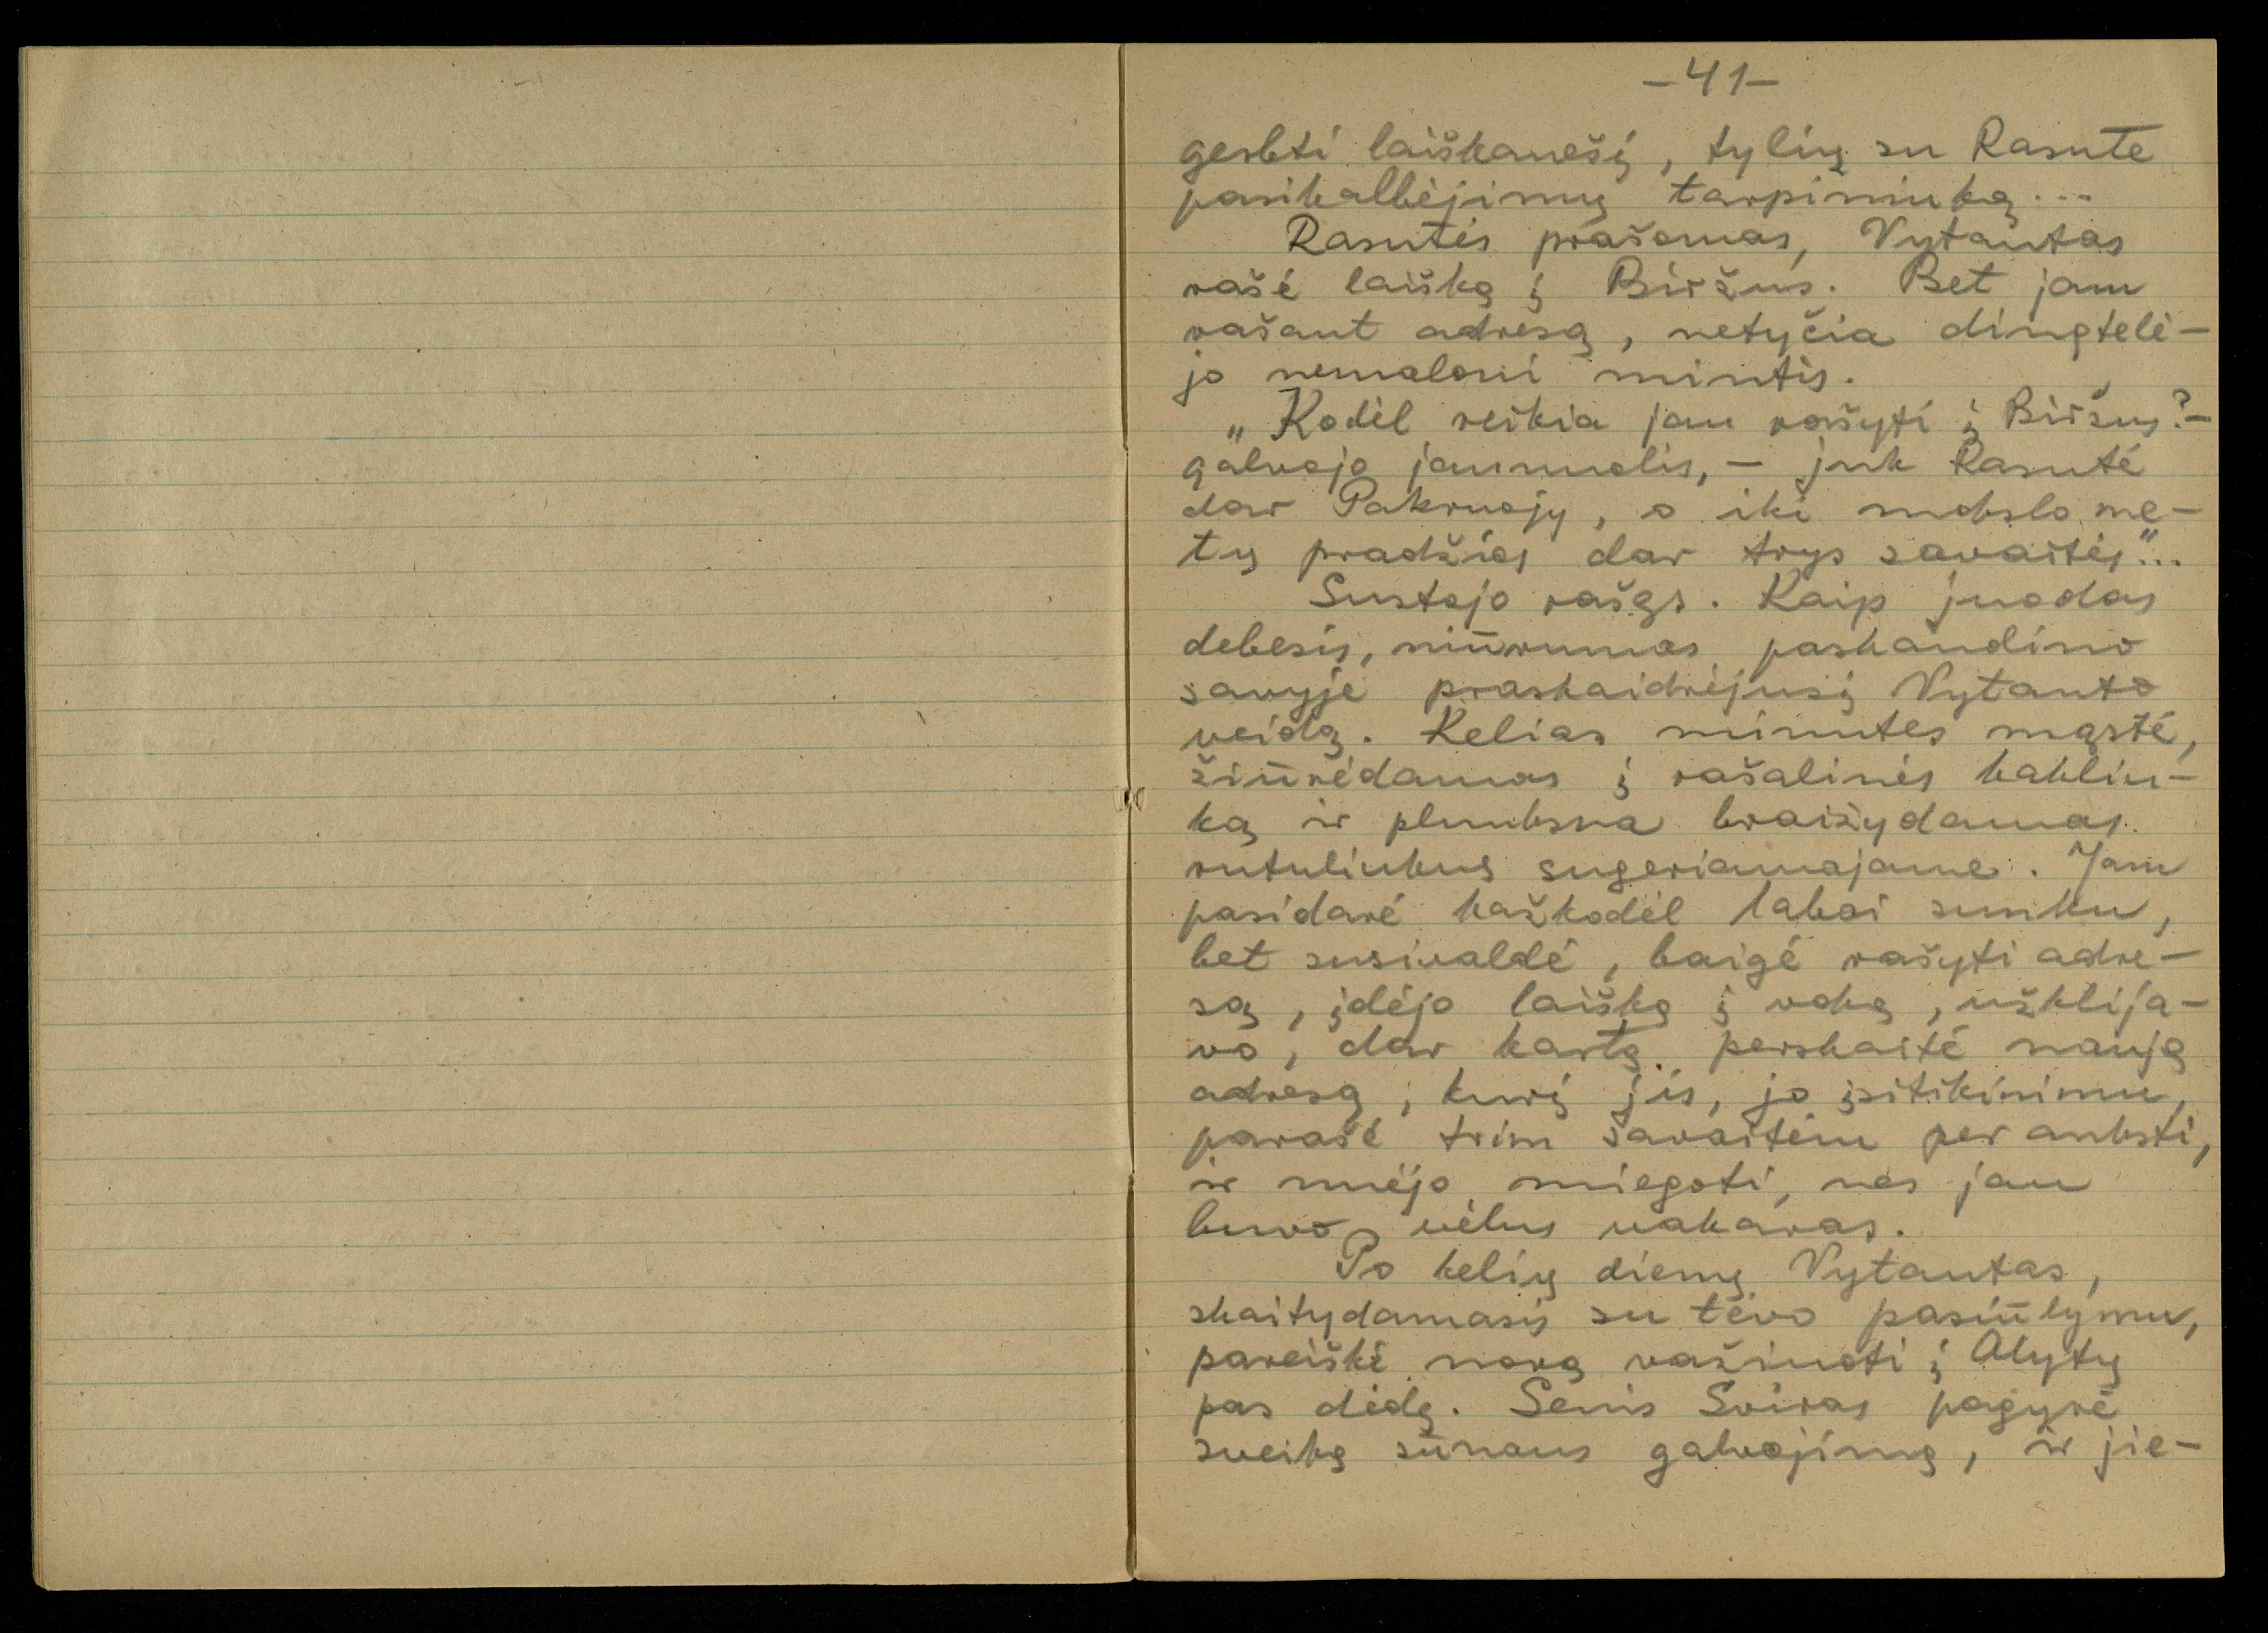 –41–
gesbti laiškanešį, tylių su Rasute
pasikalbėjimų tarpininką...
Rasutės prašomas, Vytautas
rašė laišką į Biržus. Bet jam
rašant adresą, netyčia dingtelė–
jo nemaloni mintis.
„Kodėl reikia jau rašyti į Biržus?–
galvojo jaunuolis, – juk Rasutė
dar Pakruojy, o iki mokslo me–
tų pradžios dar trys savaitės"...
Sustojo rašęs. Kaip juodas
debesis, niūrumas paskandino
savyje praskaidrėjusį Vytauto
veidą. Kelias minutes mąstė,
žiūrėdamas į rašalinės kakliu–
ką ir plunksna braižydamas
rutuliukus sugeriamajame. Jam
pasidarė kažkodėl labai sunku,
bet susivaldė, baigė rašyti adre–
są, įdėjo laišką į voką, užklija–
vo, dar kartą perskaitė naują
adresą, kurį jis, jo įsitikinimu,
parašė trim savaitėm per anksti,
ir nuėjo miegoti, nes jau
buvo vėlus vakaras.
Po kelių dienų Vytautas,
skaitydamasis su tėvo pasiūlymu,
pareiškė norą važiuoti į Alytų
pas dėdę. Senis Sviras pagyrė
sveiką sūnaus galvojimą, ir jie–